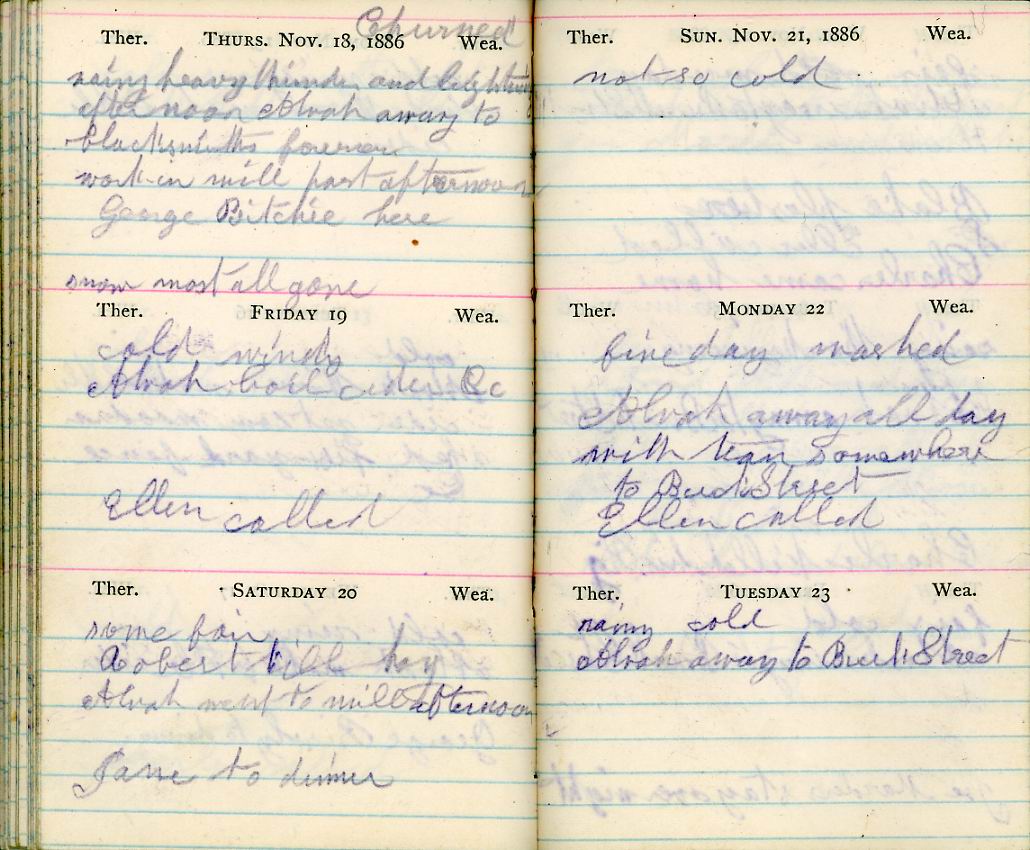 Churned
Ther. THURS. NOV. 18, 1886 Wea.
rainy heavy thunder and lightning
afternoon Alvah away to
blacksmiths forenoon
work in mill part afternoon
George Bitchie here
snow most all gone
Ther. FRIDAY 19 Wea.
cold windy
Alvah boil cider &c
Ellen called
Ther. SATURDAY 20 Wea.
some fair
Robert kill hog
Alvah went to mill afternoon
Jane to dinner
Ther. SUN. NOV. 21, 1886 Wea.
not so cold
Ther. MONDAY 22 Wea.
fine day washed
Alvah away all day
with team somewhere
to Buck Street
Ellen called
Ther. TUESDAY 23 Wea.
rainy cold
Alvah away to Buck Street